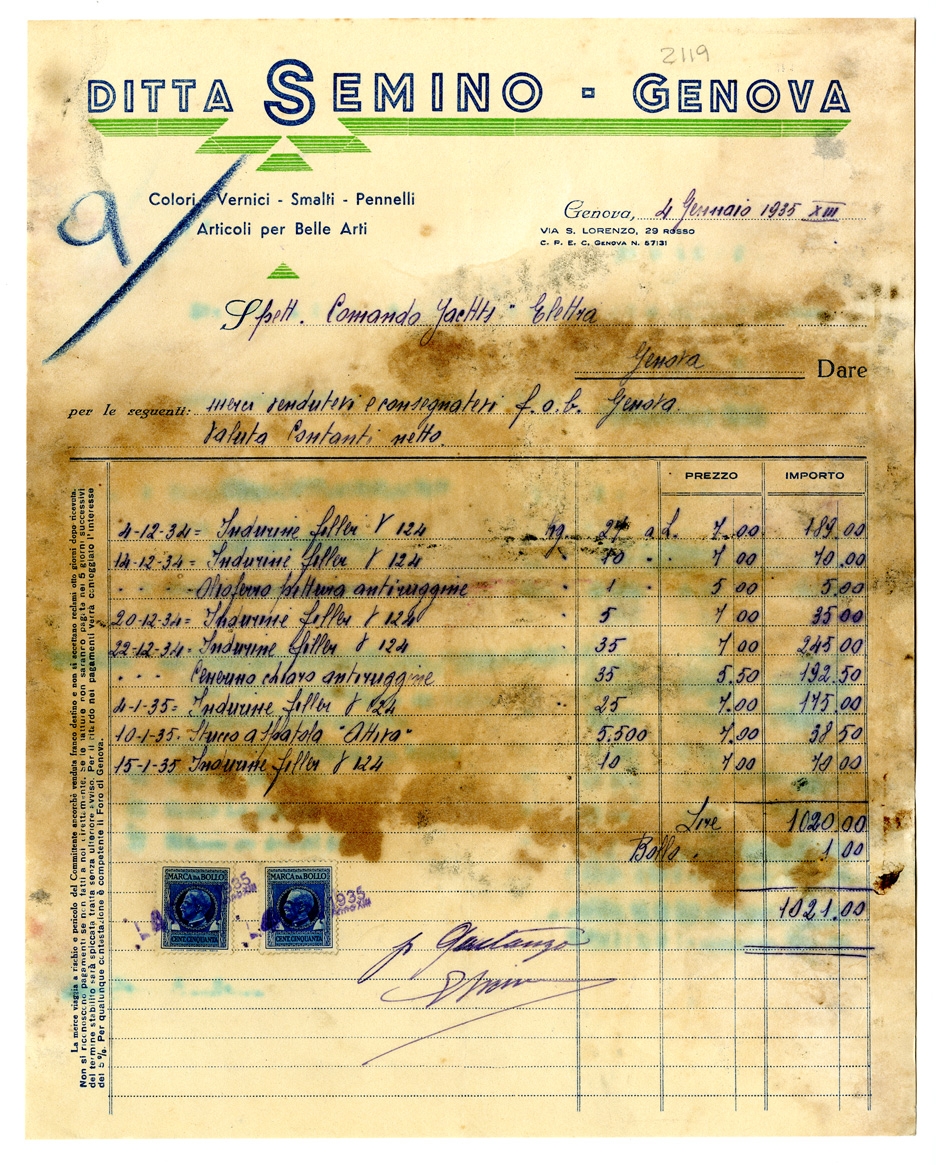 2119
DITTA SEMINO - GENOVA
9/
Colori - Vernici - Smalti - Pennelli
Articoli per Belle Arti
Genova, 4 Gennaio 1935 XIII
VIA S. LORENZO, 29 ROSSO
C. P. E. C. GENOVA N. 57131
Spett. Comando Yachts "Elettra
Genova Dare
per le seguenti: merci vendutevi e consegnatevi f.o.b. Genova
Valuta Contanti netto
PREZZO IMPORTO
4-12-34= Indurine filler 124 Kg. 27 a L. 7.00 189.00
14-12-34= Indurine filler 124 " 10 " 7 00 70.00
" " " - pittura antiruggine " 1 " 5 00 5.00
20-12-34= Indurine filler 124 " 5 7 00 35 00
22-12-34= Indurine filler 124 " 35 7 00 245.00
" " " Cenerino chiaro antiruggine " 35 5.50 192.50
4-1-35= Indurine filler 124 " 25 7.00 175.00
10-1-35. Stucco a Spatola "Attiva" 5.500 7.00 38 50
15-1-35 Indurine filler 124 " 10 7 00 70 00
Lire 1020.00
Bollo. 1.00
1021.00
MARCA DA BOLLO MARCA DA BOLLO
1935 1935
CENT. CINQUANTA CENT. CINQUANTA
La merce viaggia a rischio e pericolo del Committente ancorchè venduta franco destino e non si accettano reclami otto giorni dopo ricevuta.
Non si riconoscono pagamenti se non fatti a noi direttamente. Se le fatture non saranno pagate nei 5 giorni successivi
del termine stabilito sarà spiccata tratta senza ulteriore avviso. Per il ritardo nei pagamenti verrà conteggiato l'interesse
del 5 %. Per qualunque contestazione è competente il Foro di Genova.